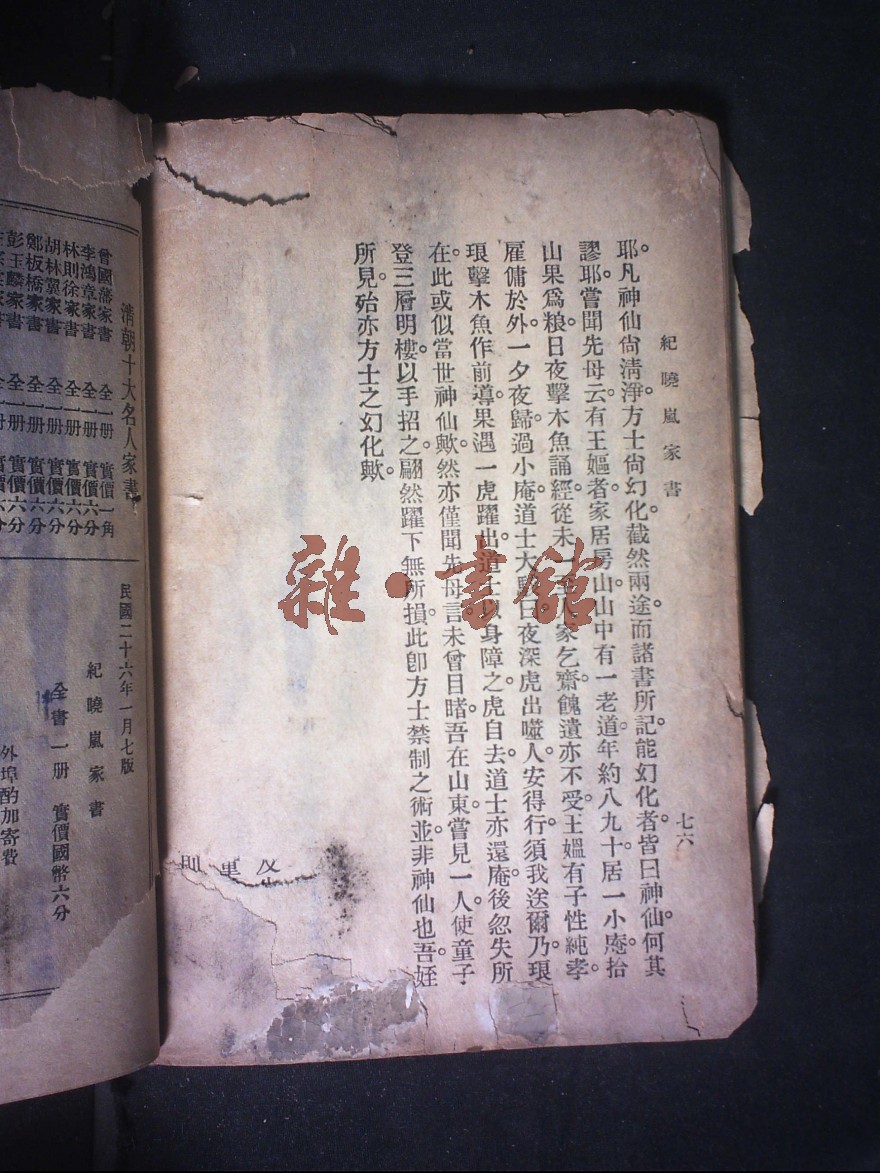 紀曉嵐家書
七六
耶。凡神仙尙清淨。方士尙幻化。截然兩途。而諸書所記。能幻化者。皆曰神仙。何其
謬耶。嘗聞先母云。有王嫗者。家居房山。山中有一老道。年約八九十。居一小庵。拾
山果爲粮。日夜擊木魚誦經。從未一人家乞齋。餽遺亦不受。王嫗有子。性純孝。
雇傭於外。一夕夜歸。過小庵。道士大曰。夜深虎出噬人。安得行。須我送爾。乃琅
琅擊木魚作前導。果遇一虎躍出。道士以身障之。虎自去。道士亦還庵。後忽失所
在。此或似當世神仙歟。然亦僅聞先母言。未曾目睹。吾在山東。嘗見一人。使童子
登三層明樓。以手招之。翩然躍下。無所損。此卽方士禁制之術。並非神仙也。吾姪
所見。殆亦方士之幻化歟。
雜·書館
清朝十大名人家書
曾國藩家書 全一册 實價一角
李鴻章家書 全一册 實價六分
林則徐家書 全一册 實價六分
胡林翼家書 全一册 實價六分
鄭板橋家書 全一册 實價六分
彭玉麟家書 全一册 實價六分
民國二十六年一月七版
紀曉嵐家書
全書一册 實價國幣六分
外埠酌加寄費